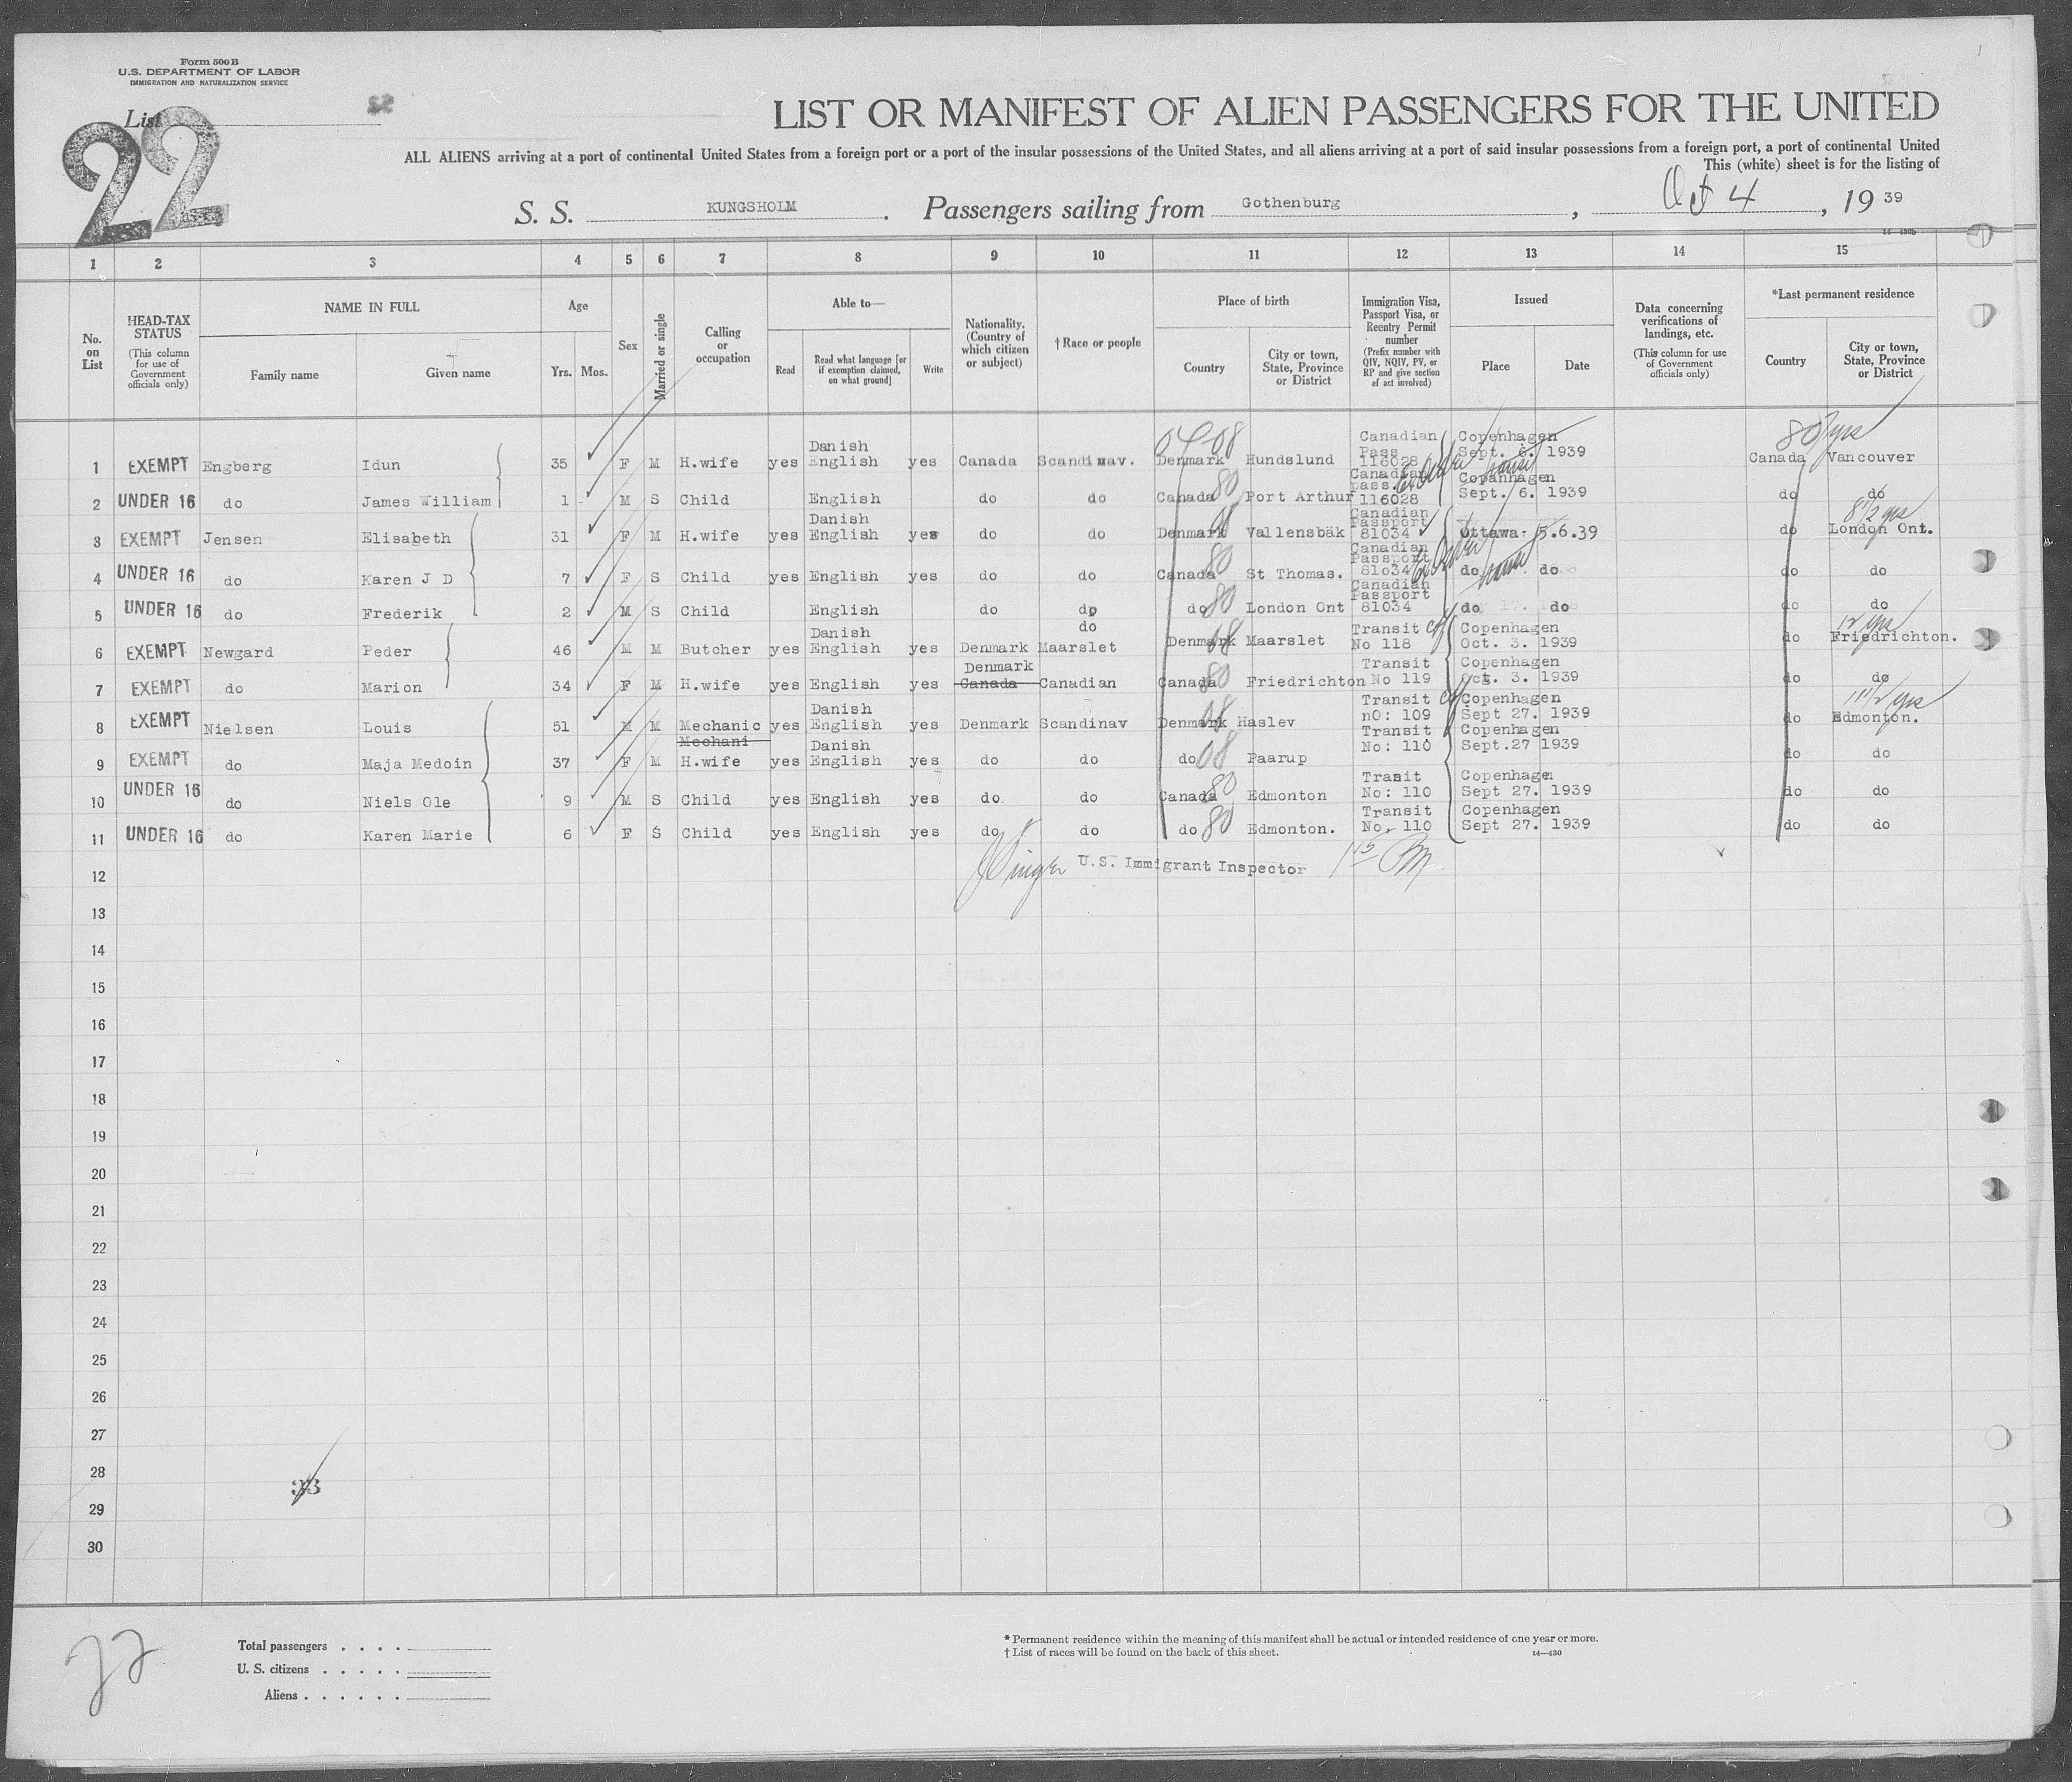 Form 500 B
U.S. DEPARTMENT OF LABOR
IMMIGRATION AND NATURALIZATION SERVICE
List
22
LIST OR MANIFEST OF ALIEN PASSENGERS FOR THE UNITED
ALL ALIENS arriving at a port of continental United States from a foreign port or a port of the insular possessions of the United States, and all aliens arriving at a port of said insular possessions from a foreign port, a port of continental United
This (white) sheet is for the listing of
S. S. KUNGSHOLM. Passengers sailing from Gothenburg, Oct 4, 19 39
1 2 3 4 5 6 7 8 9 10 11 12 13 14 15
No. on List
HEAD-TAX STATUS (This column for use of Government officials only)
NAME IN FULL
Family name Given name
Age
Yrs. Mos.
Sex
Married or single
Calling or occupation
Able to—
Read
Read what language [or if exemption claimed, on what ground]
Write
Nationality. (Country of which citizen or subject)
†Race or people
Place of birth
Country
City or town, State, Province or District
Immigration Visa, Passport Visa, or Reentry Permit number (Prefix number with QIV, NQIV, PV, or RP and give section of act involved)
Issued
Place Date
Data concerning verifications of landings, etc. (This column for use of Government officials only)
*Last permanent residence
Country
City or town, State, Province or District
1 EXEMPT Engberg Idun 35 F M H.wife yes Danish English yes Canada Scandinav. Denmark 08 Hundslund Canadian Pass 116028 Copenhagen Sept. 6. 1939 Canada Vancouver
2 UNDER 16 do James William 1 M S Child English do do Canada 80 Port Arthur Canadian pass. 116028 Copanhagen Sept. 6. 1939 do do
3 EXEMPT Jensen Elisabeth 31 F M H.wife yes Danish English yes do do Denmark 08 Vallensbäk Canadian Passport 81034 Ottawa 5.6.39 do London Ont. 8 1/2 yrs
4 UNDER 16 do Karen J D 7 F S Child yes English yes do do Canada 80 St Thomas. Canadian Passport 81034 do do do do
5 UNDER 16 do Frederik 2 M S Child English do do do 80 London Ont Canadian Passport 81034 do do do do
6 EXEMPT Newgard Peder 46 M M Butcher yes Danish English yes Denmark do Maarslet Denmark 08 Maarslet Transit No 118 Copenhagen Oct. 3. 1939 do Friedrichton. 12 yrs
7 EXEMPT do Marion 34 F M H.wife yes English yes Denmark Canada Canadian Canada 80 Friedrichton Transit No 119 Copenhagen Oct. 3. 1939 do do
8 EXEMPT Nielsen Louis 51 M M Mechanic yes Danish English yes Denmark Scandinav Denmark 08 Haslev Transit nO: 109 Copenhagen Sept 27. 1939 do Edmonton. 11 1/2 yrs
9 EXEMPT do Maja Medoin 37 F M Mechani H.wife yes Danish English yes do do do 08 Paarup Transit No: 110 Copenhagen Sept.27 1939 do do
10 UNDER 16 do Niels Ole 9 M S Child yes English yes do do Canada 80 Edmonton Transit No: 110 Copenhagen Sept 27. 1939 do do
11 UNDER 16 do Karen Marie 6 F S Child yes English yes do do do 80 Edmonton. Transit No, 110 Copenhagen Sept 27. 1939 do do
12 U.S. Immigrant Inspector
13
14
15
16
17
18
19
20
21
22
23
24
25
26
27
28
29
30
33
22
Total passengers . . . .
U. S. citizens . . . . .
Aliens . . . . . .
* Permanent residence within the meaning of this manifest shall be actual or intended residence of one year or more.
† List of races will be found on the back of this sheet.
14—430